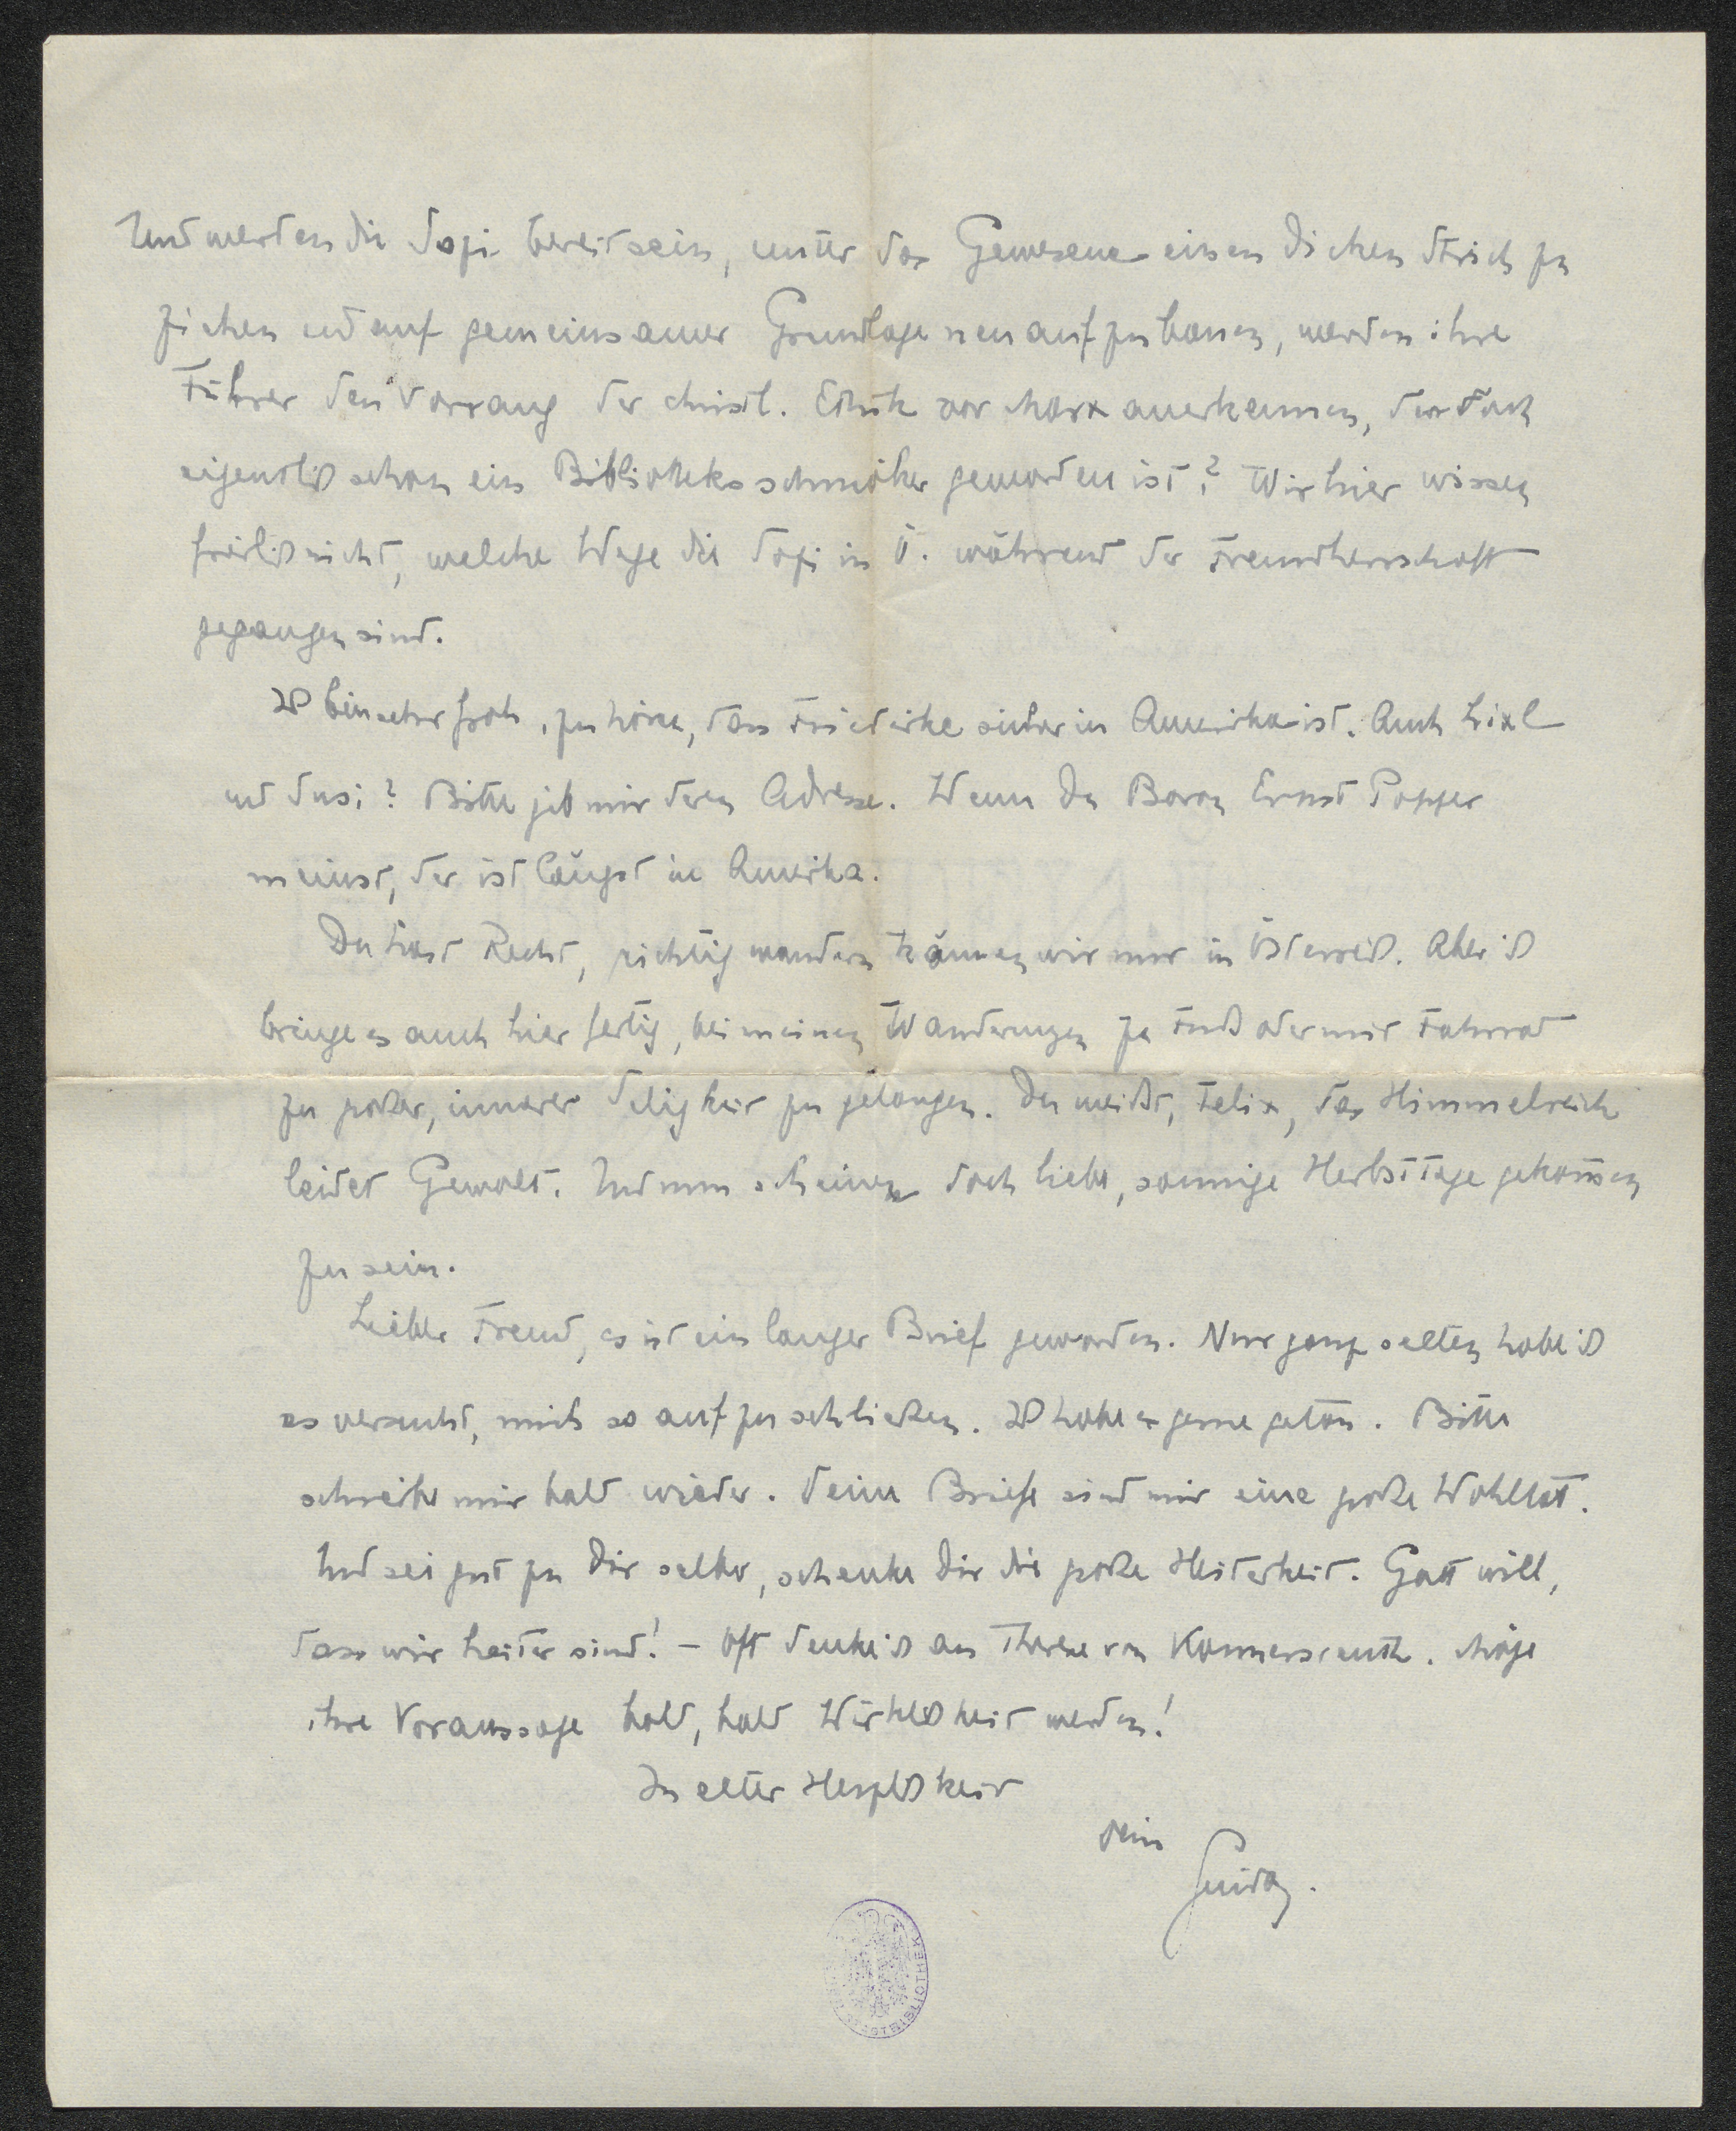 Und werden die Sozi bereit sein, unter das Gewesene einen dicken Strich zu
ziehen und auf gemeinsamer Grundlage neu aufzubauen, werden ihre
Führer den Vorrang der christl. Ethik vor Marx anerkennen, der doch
eigentlich schon ein Bibliotheksschmöker geworden ist? Wir hier wissen
freilich nicht, welche Wege die Sozi in Ö. während der Fremdherrschaft
gegangen sind.
Ich bin sehr froh, zu hören, dass Friderike sicher in Amerika ist. Auch Lixl
und Susi? Bitte gib mir deren Adresse. Wenn Du Baron Ernst Popper
meinst, der ist längst in Amerika.
Du hast Recht, richtig wandern können wir nur in Österreich. Aber ich
bringe es auch hier fertig, bei meinen Wanderungen zu Fuß oder mit Fahrrad
zu großer, innerer Seligkeit zu gelangen. Du weißt, Felix, das Himmelreich
leidet Gewalt. Und nun scheinen doch liebe, sonnige Herbsttage gekom̅en
zu sein.
Lieber Freund, es ist ein langer Brief geworden. Nur ganz selten habe ich
es versucht, mich so aufzuschließen. Ich habe es gerne getan. Bitte
schreibe mir bald wieder. Deine Briefe sind mir eine große Wohltat.
Und sei gut zu Dir selber, schenke Dir die große Heiterkeit. Gott will,
dass wir heiter sind! – Oft denke ich an Therese von Konnersreuth. Möge
ihre Voraussage bald, bald Wirklichkeit werden!
In alter Herzlichkeit
Dein
Guido.
STADTBIBLIOTHEK